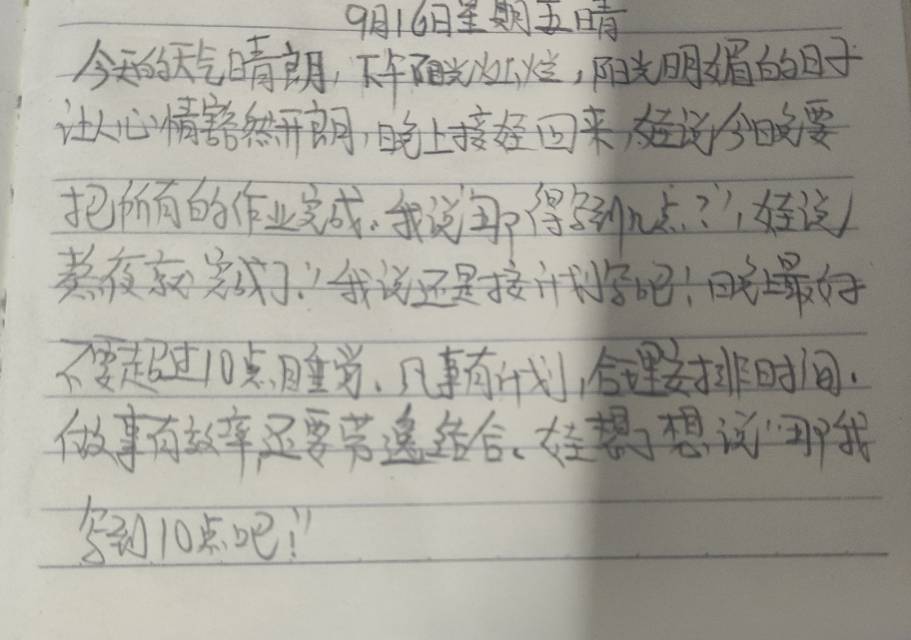 9月16日星期五晴
今天的天气晴朗,下午阳光灿烂,阳光明媚的日子
让人心情豁然开朗,晚上接娃回来,娃说今晚要
把所有的作业完成。我说"那得写到几点?",娃说
熬夜就完成了!"我说还是按计划写吧!晚上最好
不要超过10点睡觉、凡事有计划,合理安排时间.
做事有效率还要劳逸结合。娃想了想说"那我
写到10点吧!"